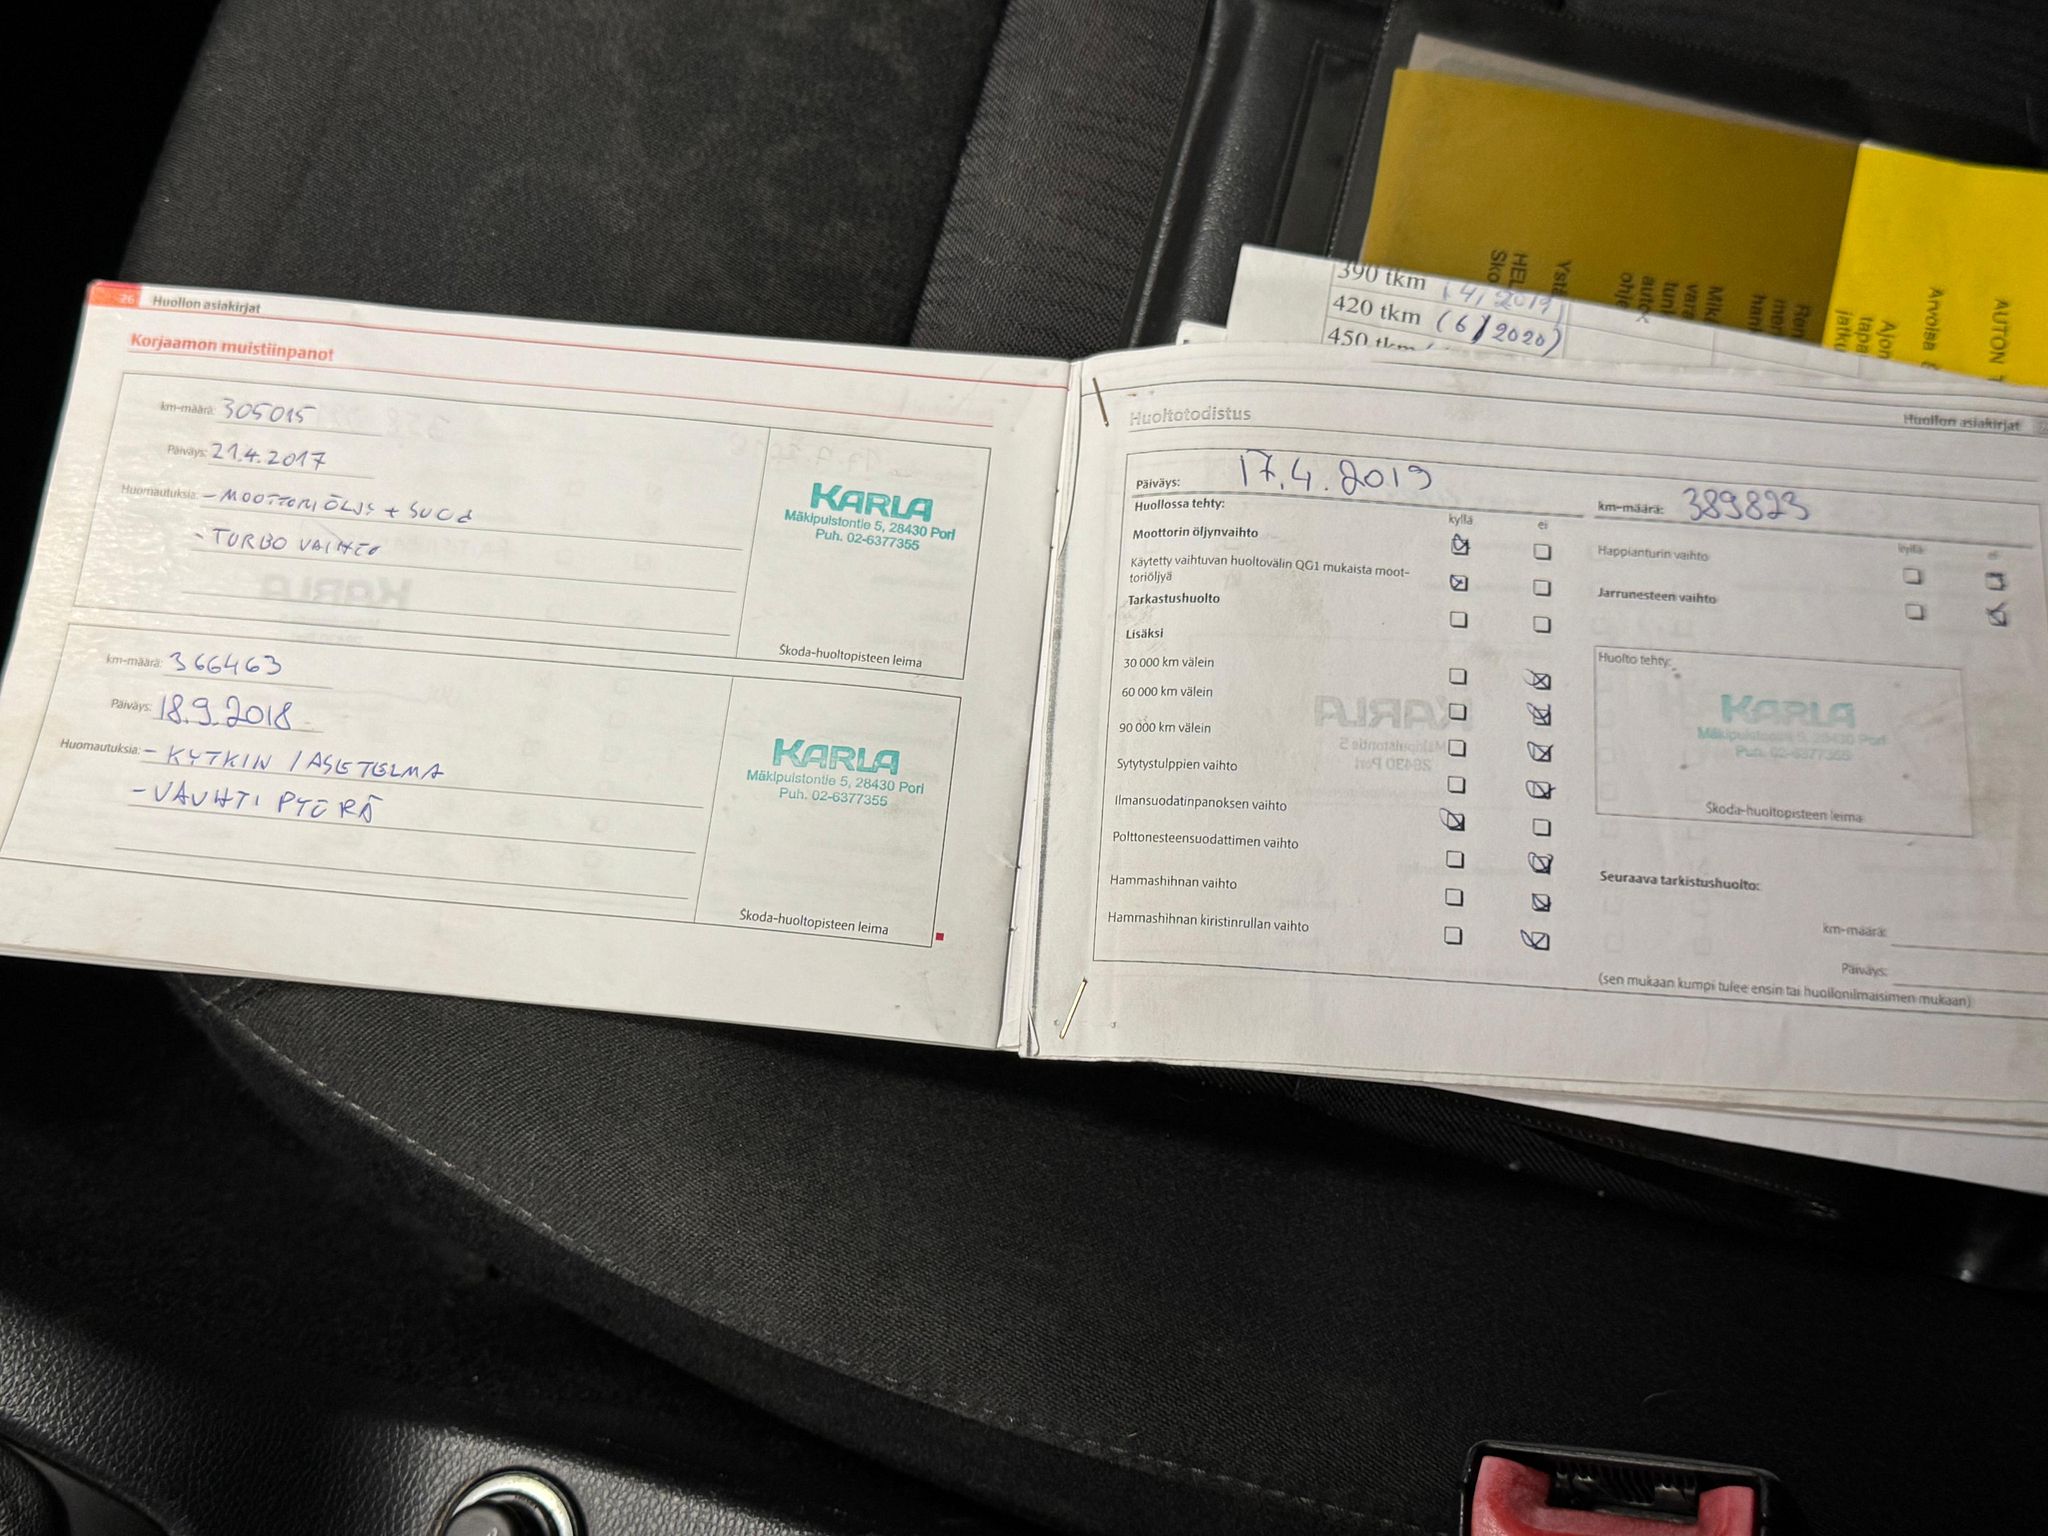 26 Huollon asiakirjat
Korjaamon muistiinpanot
km-määrä: 305015
Päiväys: 21.4.2017
Huomautuksia: - MOOTTORIÖLJY + SUOD
- TURBO VAIHTO
KARLA
Mäkipuistontie 5, 28430 Pori
Puh. 02-6377355
Škoda-huoltopisteen leima
km-määrä: 366463
Päiväys: 18.9.2018
Huomautuksia: - KYTKIN / ASETELMA
- VAUHTI PYÖRÄ
KARLA
Mäkipuistontie 5, 28430 Pori
Puh. 02-6377355
Škoda-huoltopisteen leima
390 tkm (4/2019)
420 tkm (6/2020)
450 tkm
AUTON
Huoltotodistus
Huollon asiakirjat
Päiväys: 17.4.2019
km-määrä: 389823
Huollossa tehty:
kyllä ei
Moottorin öljynvaihto
Käytetty vaihtuvan huoltovälin QG1 mukaista moot-
toriöljyä
Tarkastushuolto
Lisäksi
30 000 km välein
60 000 km välein
90 000 km välein
Sytytystulppien vaihto
Ilmansuodatinpanoksen vaihto
Polttonesteensuodattimen vaihto
Hammashihnan vaihto
Hammashihnan kiristinrullan vaihto
kyllä ei
Happianturin vaihto
Jarrunesteen vaihto
Huolto tehty:
KARLA
Mäkipuistontie 5, 28430 Pori
Puh. 02-6377355
Škoda-huoltopisteen leima
Seuraava tarkistushuolto:
km-määrä:
Päiväys:
(sen mukaan kumpi tulee ensin tai huollonilmaisimen mukaan)